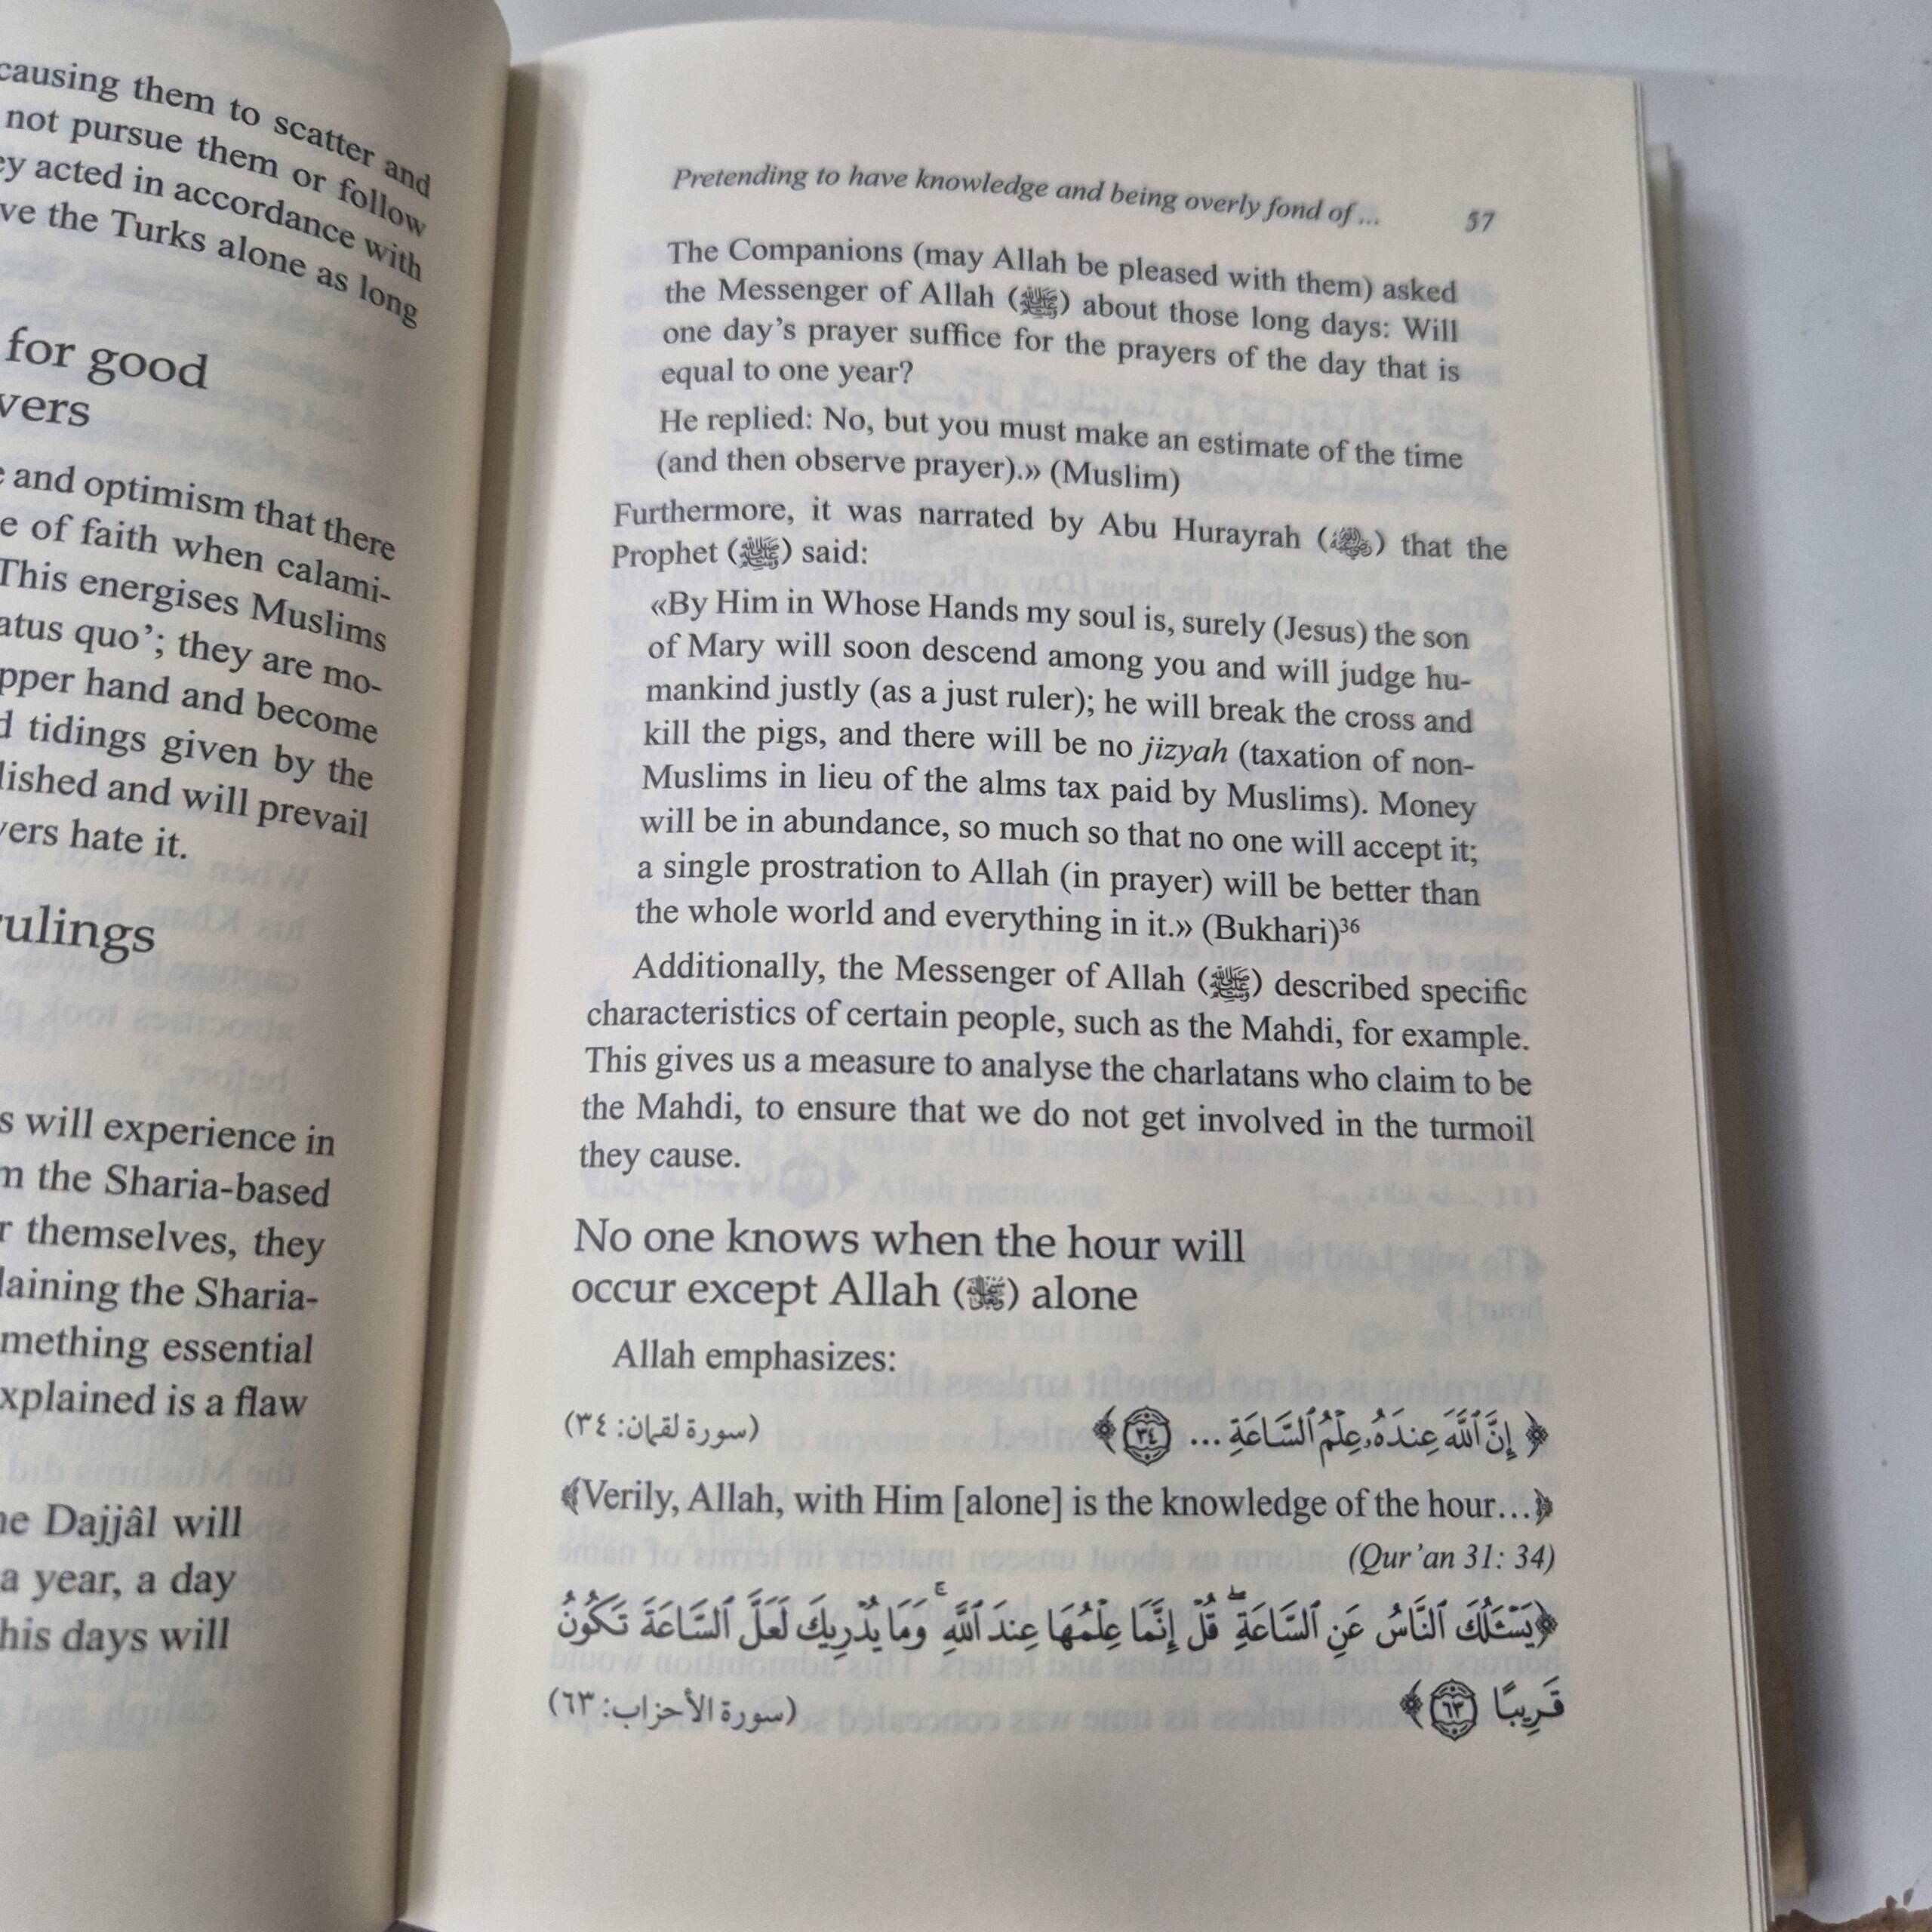 causing them to scatter and
not pursue them or follow
ey acted in accordance with
ve the Turks alone as long
for good
vers
and optimism that there
e of faith when calami-
This energises Muslims
atus quo’; they are mo-
pper hand and become
d tidings given by the
lished and will prevail
vers hate it.
rulings
s will experience in
m the Sharia-based
r themselves, they
laining the Sharia-
mething essential
xplained is a flaw
ne Dajjâl will
a year, a day
his days will
Pretending to have knowledge and being overly fond of ... 57
The Companions (may Allah be pleased with them) asked
the Messenger of Allah (ﷺ) about those long days: Will
one day’s prayer suffice for the prayers of the day that is
equal to one year?
He replied: No, but you must make an estimate of the time
(and then observe prayer).» (Muslim)
Furthermore, it was narrated by Abu Hurayrah (رضي الله عنه) that the
Prophet (ﷺ) said:
«By Him in Whose Hands my soul is, surely (Jesus) the son
of Mary will soon descend among you and will judge hu-
mankind justly (as a just ruler); he will break the cross and
kill the pigs, and there will be no jizyah (taxation of non-
Muslims in lieu of the alms tax paid by Muslims). Money
will be in abundance, so much so that no one will accept it;
a single prostration to Allah (in prayer) will be better than
the whole world and everything in it.» (Bukhari)³⁶
Additionally, the Messenger of Allah (ﷺ) described specific
characteristics of certain people, such as the Mahdi, for example.
This gives us a measure to analyse the charlatans who claim to be
the Mahdi, to ensure that we do not get involved in the turmoil
they cause.
No one knows when the hour will
occur except Allah (ﷻ) alone
Allah emphasizes:
﴿ إِنَّ ٱللَّهَ عِندَهُۥ عِلْمُ ٱلسَّاعَةِ ... ٣٤ ﴾ (سورة لقمان: ٣٤)
﴾Verily, Allah, with Him [alone] is the knowledge of the hour…﴿
(Qur’an 31: 34)
﴿يَسْـَٔلُكَ ٱلنَّاسُ عَنِ ٱلسَّاعَةِ ۖ قُلْ إِنَّمَا عِلْمُهَا عِندَ ٱللَّهِ ۚ وَمَا يُدْرِيكَ لَعَلَّ ٱلسَّاعَةَ تَكُونُ
قَرِيبًا ٦٣ ﴾ (سورة الأحزاب: ٦٣)